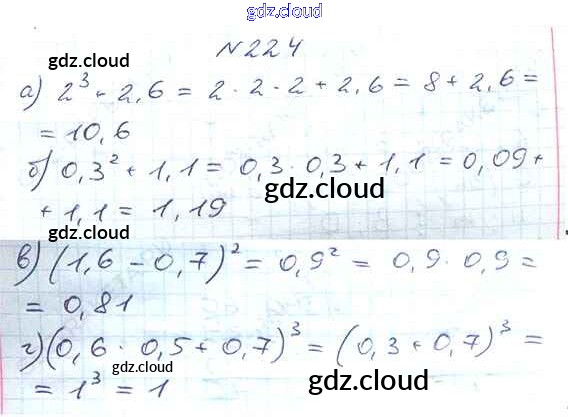 gdz.cloud
N224
gdz.cloud
а) 2³ + 2,6 = 2 · 2 · 2 + 2,6 = 8 + 2,6 =
= 10,6
б) 0,3² + 1,1 = 0,3 · 0,3 + 1,1 = 0,09 +
gdz.cloud
+ 1,1 = 1,19
gdz.cloud
в) (1,6 - 0,7)² = 0,9² = 0,9 · 0,9 =
= 0,81
gdz.cloud
г) (0,6 · 0,5 + 0,7)³ = (0,3 + 0,7)³ =
= 1³ = 1
gdz.cloud